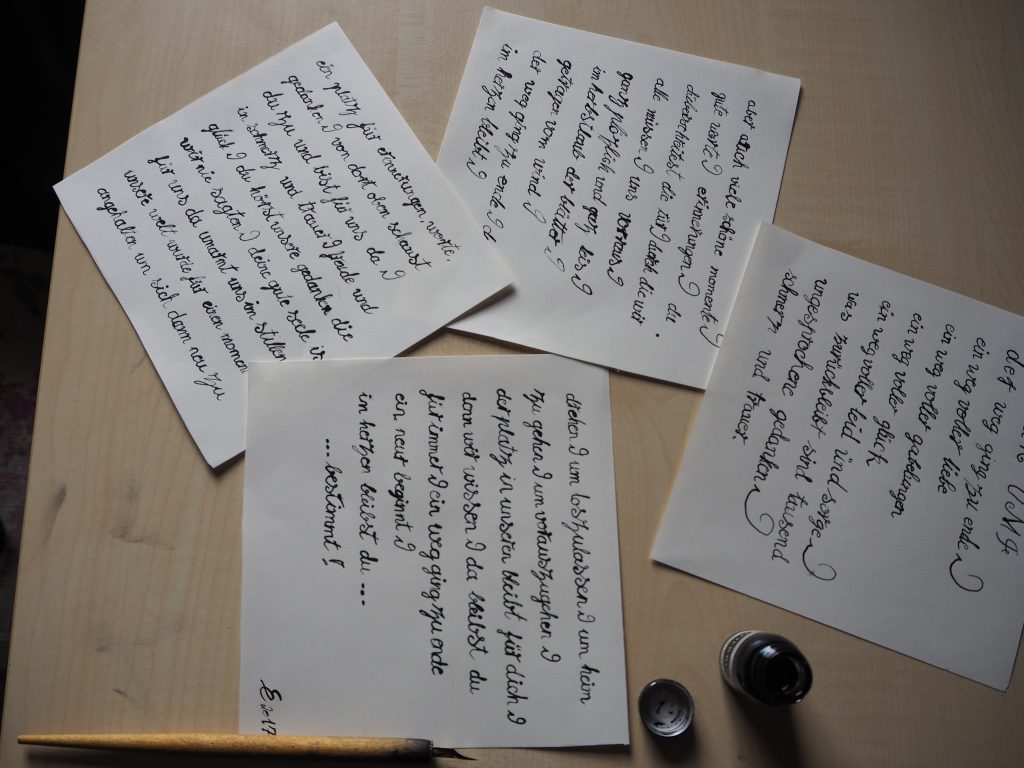 der weg ging zu ende
ein weg voller liebe
ein weg voller gabelungen
ein weg voller glück
ein weg voller leid und sorge
was zurückbleibt sind tausend
ungesprochene gedanken
schmerz und trauer.
aber auch viele schöne momente
gute worte erinnerungen du
alle müssen uns voraus
ganz plötzlich und ganz leis
im herbstlaub der blätter
getragen vom wind
der weg ging zu ende
im herzen bleibt
ein platz für erinnerungen, worte,
gedanken von dort oben schaust
du zu und bist für uns da
in schmerz und trauer freude und
glück du hörst unsere gedanken die
wir nie sagten deine gute seele ist
für uns da umarmt uns im stillen
unsere welt wurde für einen moment
angehalten um sich dann neu zu
drehen um loszulassen um heim
zu gehen um vorauszugehen
der platz in unseren bleibt für dich
denn wir wissen da bleibst du
für immer ein weg ging zu ende
ein neuer beginnt
im herzen bleibst du ...
... bestimmt!
E 2017